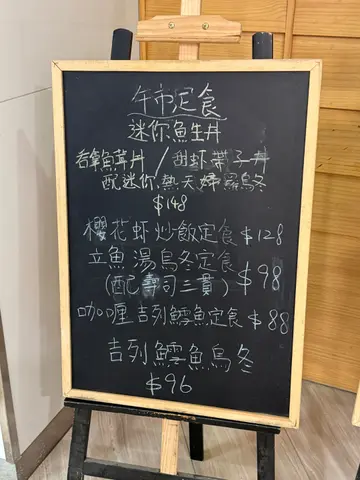 午市定食
迷你魚生丼
吞拿魚茸丼/甜虾帶子丼
配迷你熱天婦羅烏冬
$148
櫻花虾炒飯定食$128
立魚湯烏冬定食
(配壽司三貫) $98
咖喱吉列鱈魚定食$88
吉列鱈魚烏冬
$96